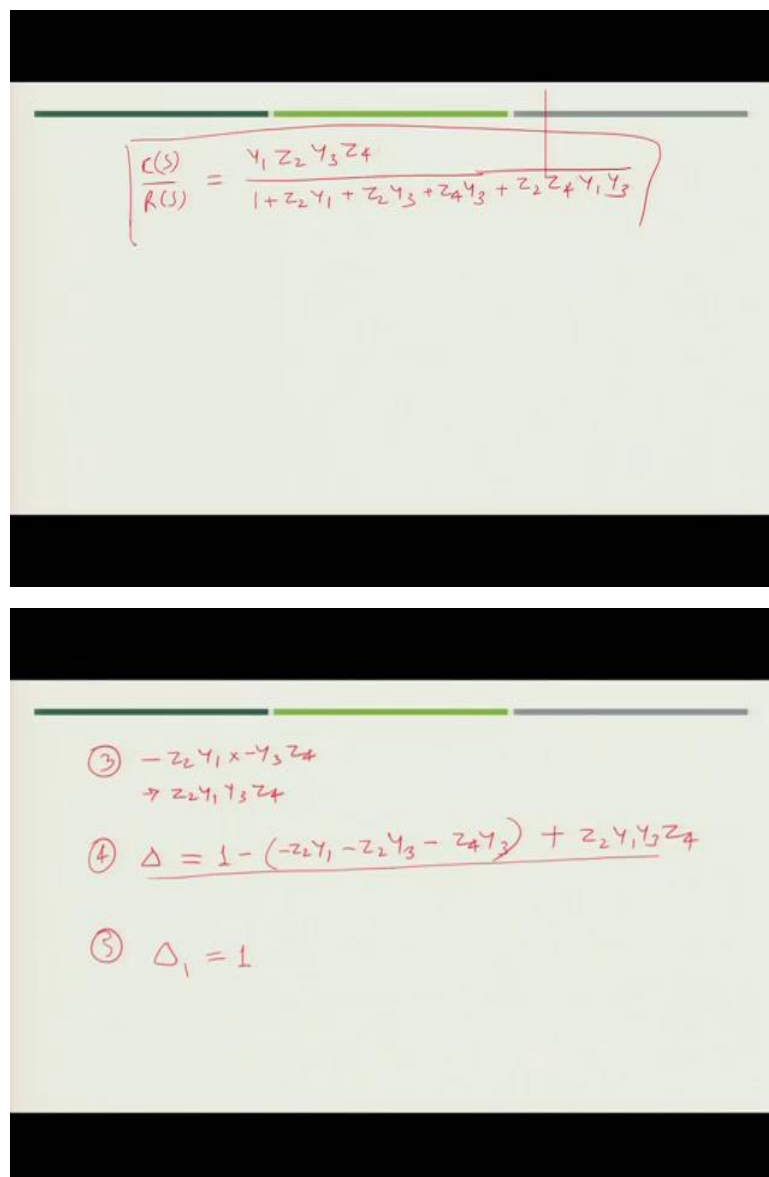 C(S)/R(S) = Y₁ Z₂ Y₃ Z₄ / 1 + Z₂ Y₁ + Z₂ Y₃ + Z₄ Y₃ + Z₂ Z₄ Y₁ Y₃
③ - Z₂ Y₁ × - Y₃ Z₄
→ Z₂ Y₁ Y₃ Z₄
④ Δ = 1 - (-Z₂Y₁ - Z₂Y₃ - Z₄Y₃) + Z₂Y₁Y₃Z₄
⑤ Δ₁ = 1